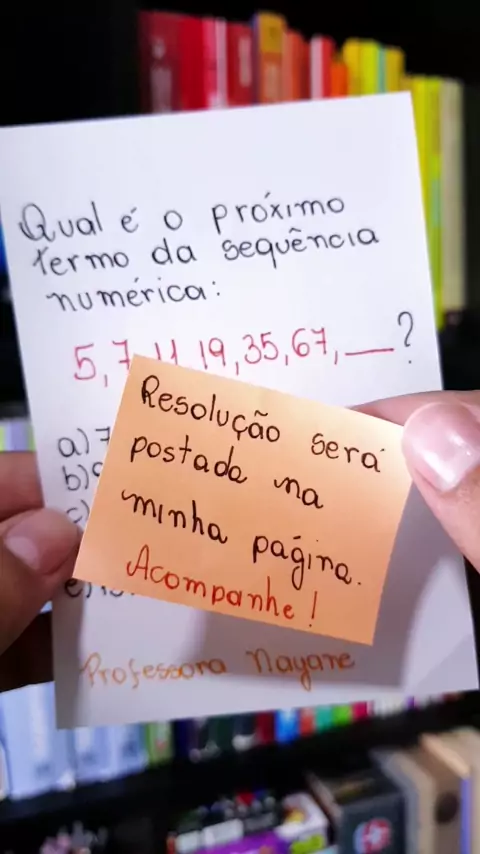 Qual é o próximo
termo da sequência
numérica:
5, 7, 11, 19, 35, 67, __?
a) 7
b)
c)
Resolução será
postada na
minha página.
Acompanhe!
e)
Professora Nayane